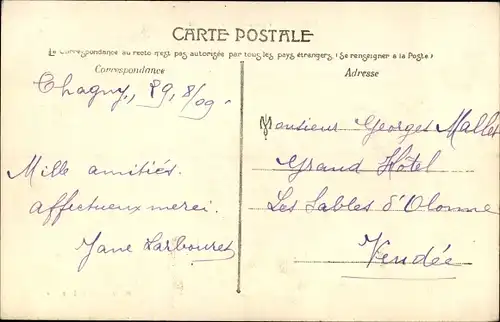 CARTE POSTALE
La Correspondance au recto n'est pas autorisée par tous les pays étrangers. (Se renseigner à la Poste)
Correspondance
Adresse
Chagny, 8/09
Mille amitiés.
affectueux merci.
Jane Larbouret
Monsieur Georges Mallet
Grand Hôtel
Les Sables d'Olonne
Vendée